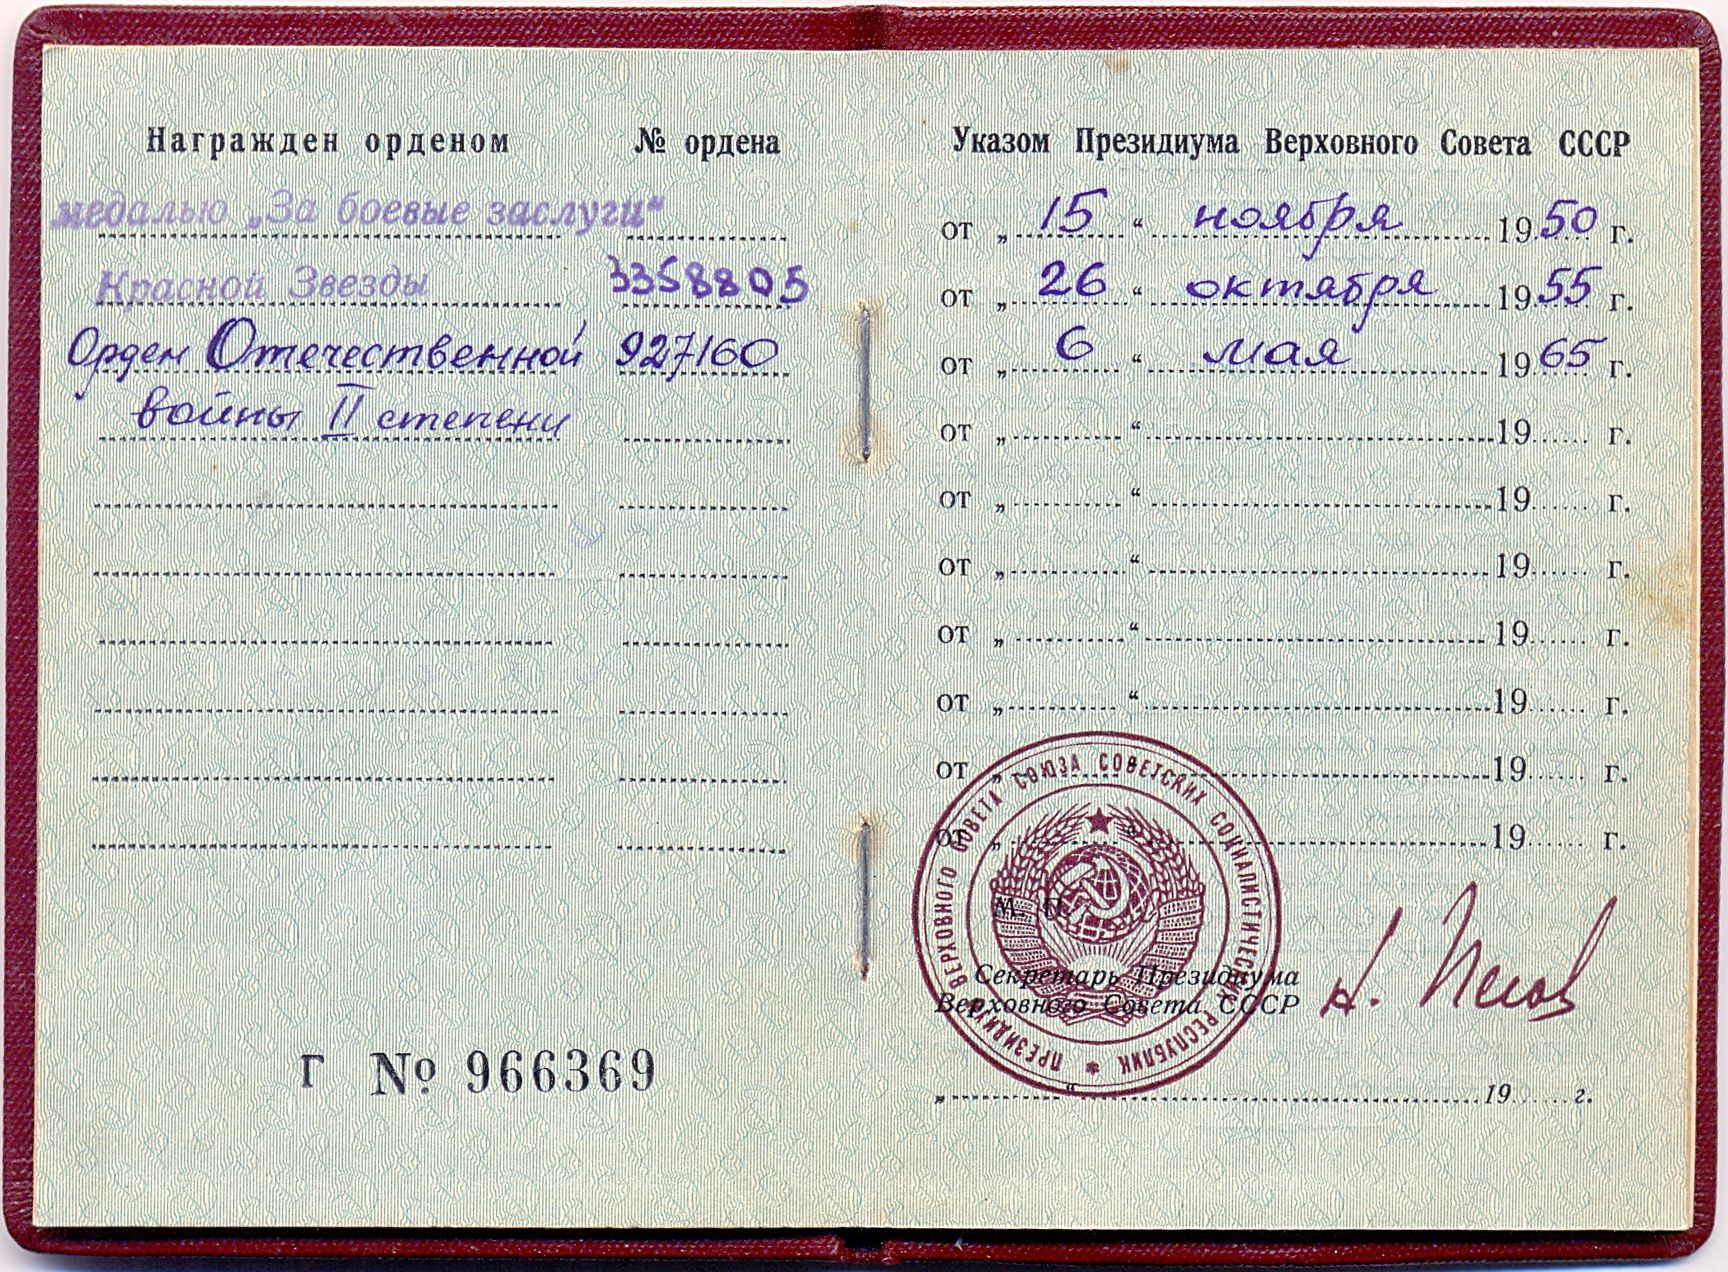 Награжден орденом № ордена
медалью „За боевые заслуги“
Красной Звезды 3358805
Орден Отечественной 927160
войны II степени
Г № 966369
Указом Президиума Верховного Совета СССР
от „ 15 “ ноября 1950 г.
от „ 26 “ октября 1955 г.
от „ 6 “ мая 1965 г.
от „ “ 19 г.
от „ “ 19 г.
от „ “ 19 г.
от „ “ 19 г.
от „ “ 19 г.
от „ “ 19 г.
от „ “ 19 г.
М. П.
ПРЕЗИДИУМ ВЕРХОВНОГО СОВЕТА СОЮЗА СОВЕТСКИХ СОЦИАЛИСТИЧЕСКИХ РЕСПУБЛИК *
Секретарь Президиума
Верховного Совета СССР
„ “ 19 г.